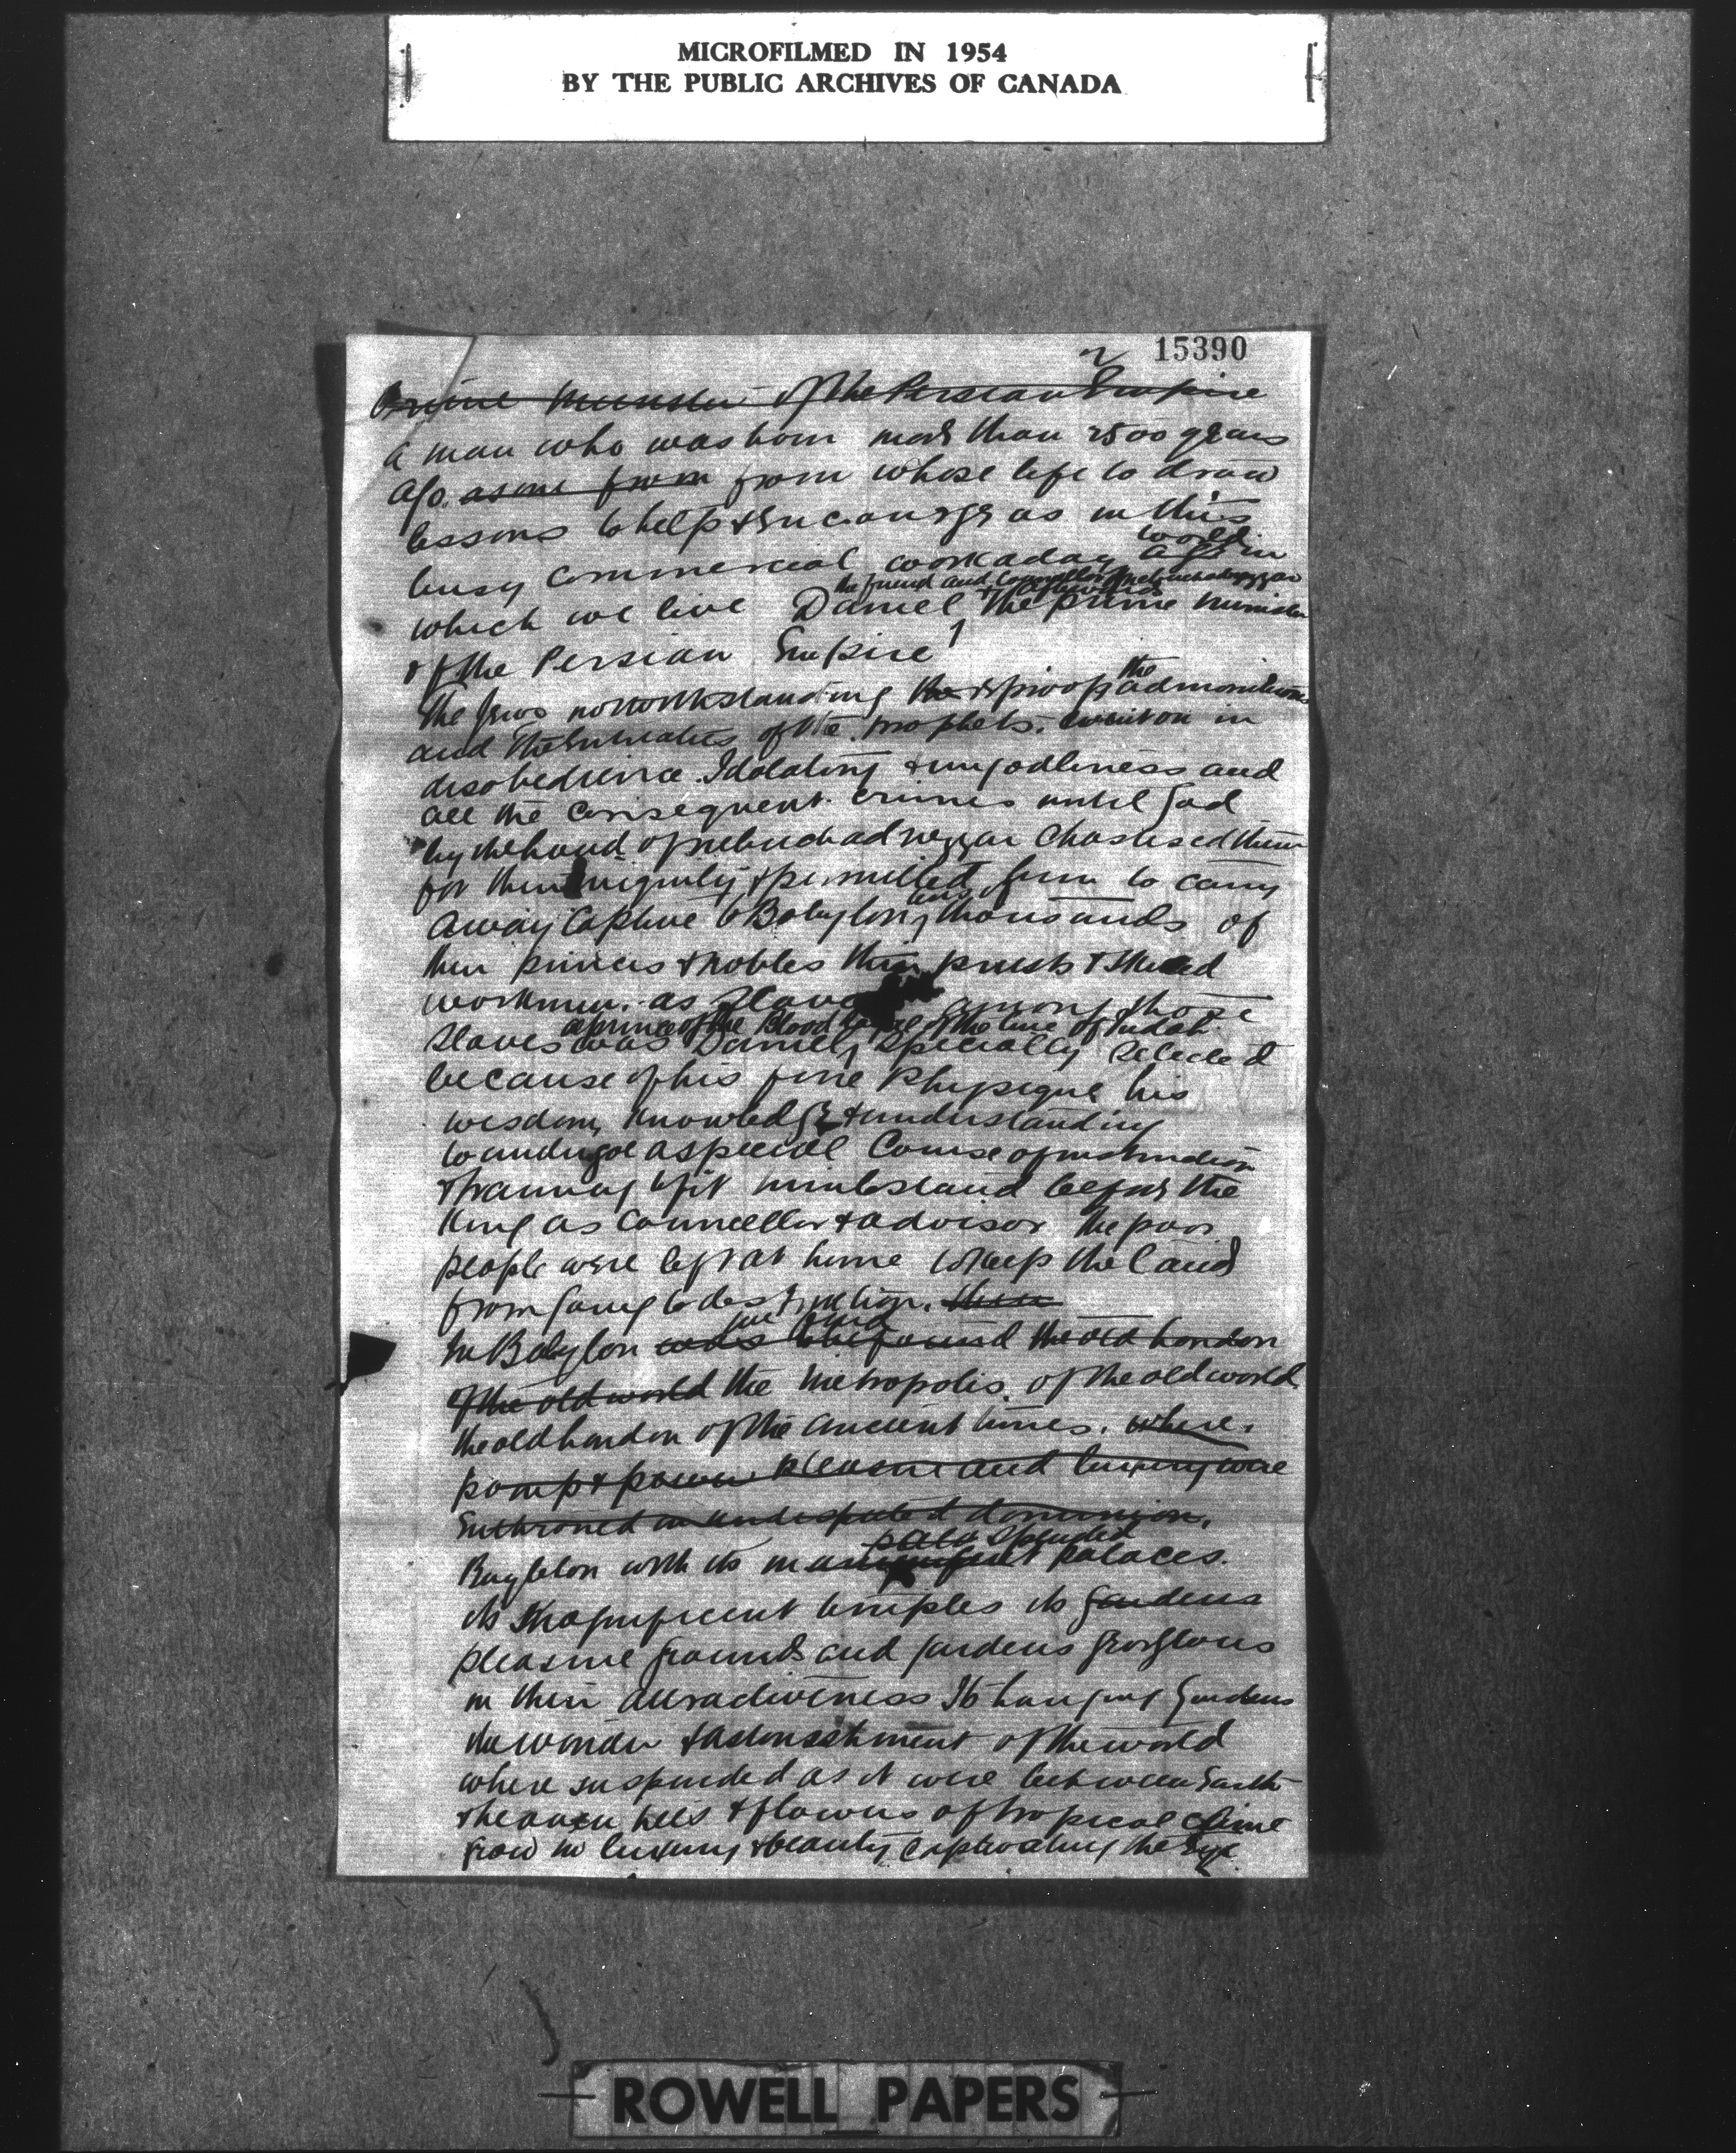 MICROFILMED IN 1954
BY THE PUBLIC ARCHIVES OF CANADA
2 15390
Prime Minister of the Persian Empire
A man who was born more than 2500 years
ago. as one from from whose life to draw
lessons to help & encourage us in this
world
busy commercial workaday age in
the friend and Councellor of Nebuchadnezzar
& afterwards
which we live Daniel the prime minister
of the Persian Empire
the
The Jews notwithstanding the admonitions
and the entreaties of the prophets. went on in
disobedience Idolatry & ungodliness and
all the consequent crimes until God
by the hand of Nebuchadnezzar chastised them
for their iniquity & permitted him to carry
tens of
away captive to Babylon thousands of
their princes & nobles their priests & skilled
workmen. as slaves among those
a prince of the Blood Royal of the line of Judah
slaves was Daniel, specially selected
because of his fine Physique his
wisdom, knowledge & understanding
to undergoe a special Course of instruction
& training to fit him to stand before the
King as Councellor & advisor The poor
people were left at home to keep the land
from going to destruction.
we find
In Babylon was to be found the old London
of the old world the metropolis. of the old world.
the old London of the ancient times. where.
pomp & power pleasure and luxury were
Enthroned in undisputed dominion.
splendid
Baylelon with its magnificent palaces.
its magnificent temples its gardens
pleasure grounds and gardens gorgeous
in their attractiveness Its hanging Gardens
the wonder & astonishment of the world
where suspended as it were between Earth
& heaven trees & flowers of tropical clime
grow in luxury & beauty captivating the Eye
ROWELL PAPERS